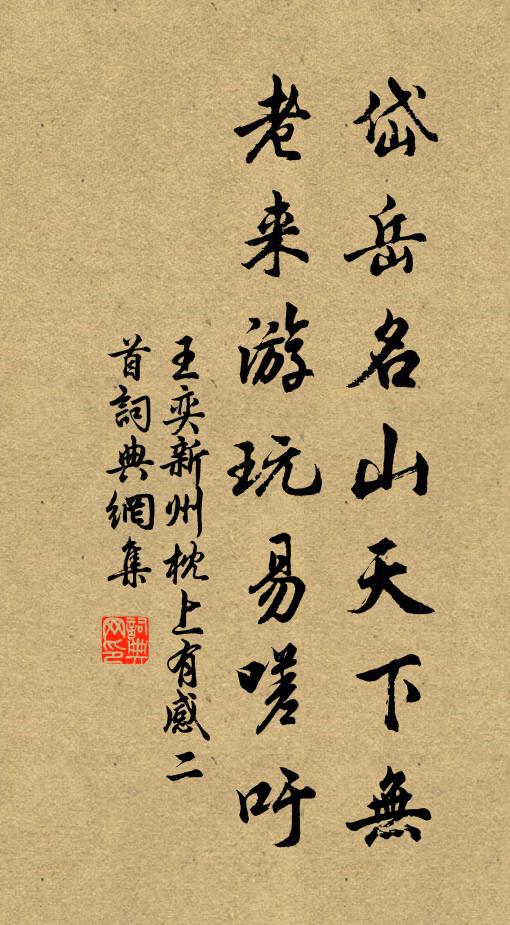 岱岳名山天下無
老来游玩易嗟吁
王奕新州枕上有感二
首詞典網集
詞典
网印